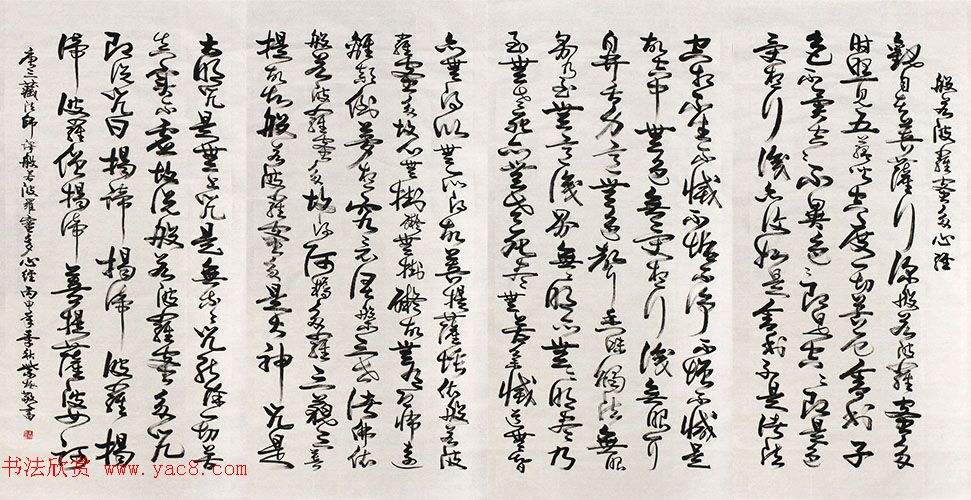 般若波羅蜜多心經
觀自在菩薩行深般若波羅蜜多
時照見五蘊皆空度一切苦厄舍利子
色不異空空不異色色即是空空即是色
受想行識亦復如是舍利子是諸法
空相不生不滅不垢不淨不增不減是
故空中無色無受想行識無眼耳
鼻舌身意無色聲香味觸法無眼
界乃至無意識界無無明亦無無明盡乃
至無老死亦無老死盡無苦集滅道無智
亦無得以無所得故菩提薩埵依般若波
羅蜜多故心無掛礙無掛礙故無有恐怖遠
離顛倒夢想究竟涅槃三世諸佛依
般若波羅蜜多故得阿耨多羅三藐三菩
提故知般若波羅蜜多是大神咒是
大明咒是無上咒是無等等咒能除一切苦
真實不虛故說般若波羅蜜多咒
即說咒曰揭諦揭諦波羅揭
諦波羅僧揭諦菩提薩婆訶
唐三藏法師譯般若波羅蜜多心經丙申年季秋敬書
书法欣赏 www.yac8.com